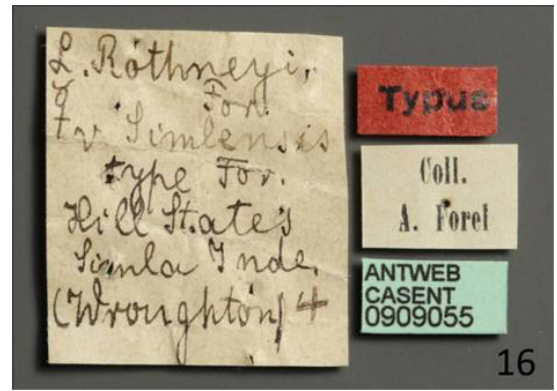 L. Rothneyi.
☿ For.
v Simlensis
type For.
Hill States
Simla Inde.
(Wroughton) 4
Typus
Coll.
A. Forel
ANTWEB
CASENT
0909055
16